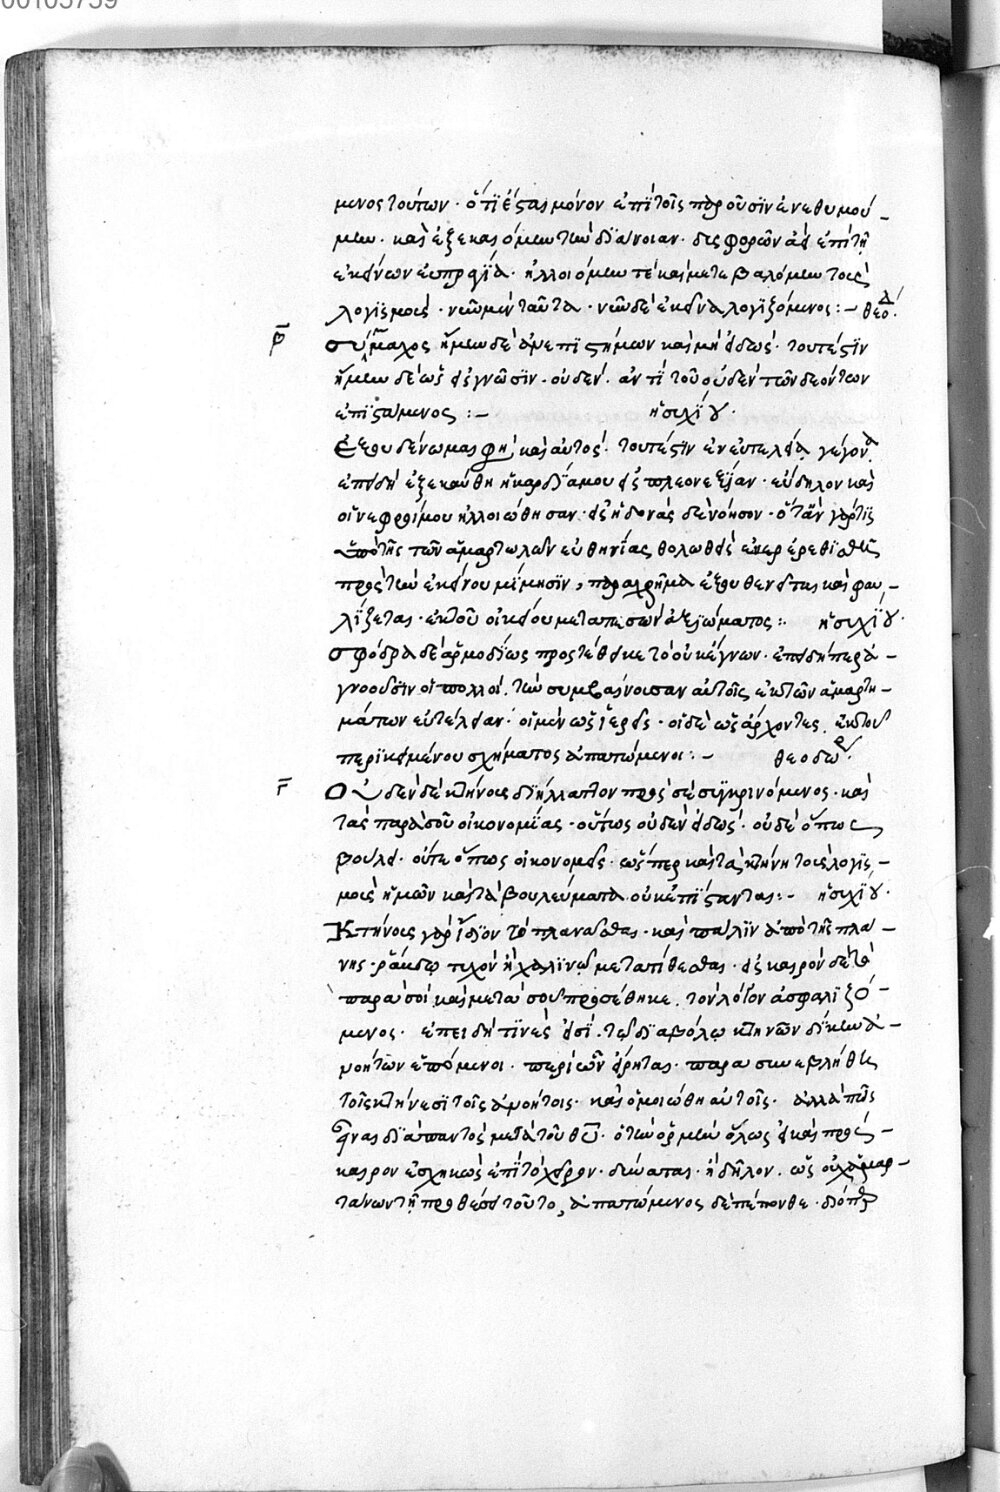 00105759
μενος τούτων · ὅτι ἕως μόνον ἐπὶ τοῖς παροῦσιν ἐνεθυμού-
μην · καὶ ἐξεκαιόμην τὴν διάνοιαν · δυσφορῶν ἀεὶ ἐπὶ τῇ
ἐκείνων εὐπραγίᾳ · ἠλλοιόμην τὲ καὶ μετεβαλόμην τοὺς
λογισμοὺς · νῦν μὲν ταῦτα · νῦν δὲ ἐκεῖνα λογιζόμενος :- θεοδ
β σύμμαχος ἤμην δὲ ἀνεπιστήμων καὶ μὴ εἰδὼς · τουτέστιν
ἤμην δὲ ὡς εἰς γνῶσιν · οὐδέν · ἀντὶ τοῦ οὐδὲν τῶν δεόντων
ἐπιστάμενος :- ἡσυχίου ·
Ἐξουδένωμαι φησὶ καὶ αὐτὸς · τουτέστιν ἐν εὐτελείᾳ γέγονα
ἐπειδὴ ἐξεκαύθη ἡ καρδία μου εἰς πλεονεξίαν · εὔδηλον καὶ
οἱ νεφροί μου ἠλλοιώθησαν · εἰς ἡδονὰς δὲ νόησον · ὅταν γάρ τις
ὑπὸ τῆς τῶν ἁμαρτωλῶν εὐθηνίας θολωθεὶς ἐρεθισθεὶς
πρὸς τὴν ἐκείνου μίμησιν, παραχρῆμα ἐξουθενεῖται καὶ φαυ-
λίζεται · ἐκ τοῦ οἰκείου μεταπεσὼν ἀξιώματος : ἡσυχίου ·
σφόδρα δὲ ἁρμοδίως προστέθεικε τὸ οὐκ ἔγνων · ἐπειδήπερ ἀ-
γνοοῦσιν οἱ πολλοὶ · τὴν συμβαίνουσαν αὐτοῖς ἐκ τῶν ἁμαρτη-
μάτων εὐτέλειαν · οἱ μὲν ὡς ἱερεῖς · οἱ δὲ ὡς ἄρχοντες ἐκ τοῦ
περικειμένου σχήματος ἀπατώμενοι :- θεοδώρ ·
γ Οὐδὲν δὲ κτήνους διήλλαττον πρὸς σὲ συγκρινόμενος · καὶ
τὰς παρὰ σοῦ οἰκονομίας · οὕτως οὐδὲν εἰδὼς · οὐδὲ ὅπως
βούλει · οὔτε ὅπως οἰκονομεῖς · ὥσπερ καὶ τὰ κτήνη τοὺς λογισ-
μοὺς ἡμῶν καὶ τὰ βουλεύματα οὐκ ἐπίσταται :- ἡσυχίου ·
Κτήνους γὰρ ἴδιον τὸ πλανᾶσθαι · καὶ πάλιν ἀπὸ τῆς πλά-
νης · ῥάβδῳ τυχὸν ἢ χαλινῷ μετατίθεσθαι · εἰς καιρὸν δὲ τὸ
παρὰ σοὶ καὶ μετὰ σοῦ προσέθηκε · τὸν λόγον ἀσφαλιζό-
μενος · ἐπειδή τινες εἰσὶ · τῷ διαβόλῳ κτηνῶν δίκην ἀ-
νοήτων ἑπόμενοι · περὶ ὧν εἴρηται · παρασυνεβλήθη
τοῖς κτήνεσι τοῖς ἀνοήτοις · καὶ ὡμοιώθη αὐτοῖς · ἀλλὰ πῶς
εἶναι διαπαντὸς μετὰ τοῦ θῦ · ὁ τὴν ὁρμὴν ὅλως εἰ καὶ πρὸς
καιρὸν ἐσχηκὼς ἐπὶ τὸ χεῖρον · δύναται · ἢ δῆλον · ὡς οὐχ ἁμαρ-
τάνων τῇ προθέσει τοῦτο, ἀπατώμενος δὲ πέπονθε · διόπερ